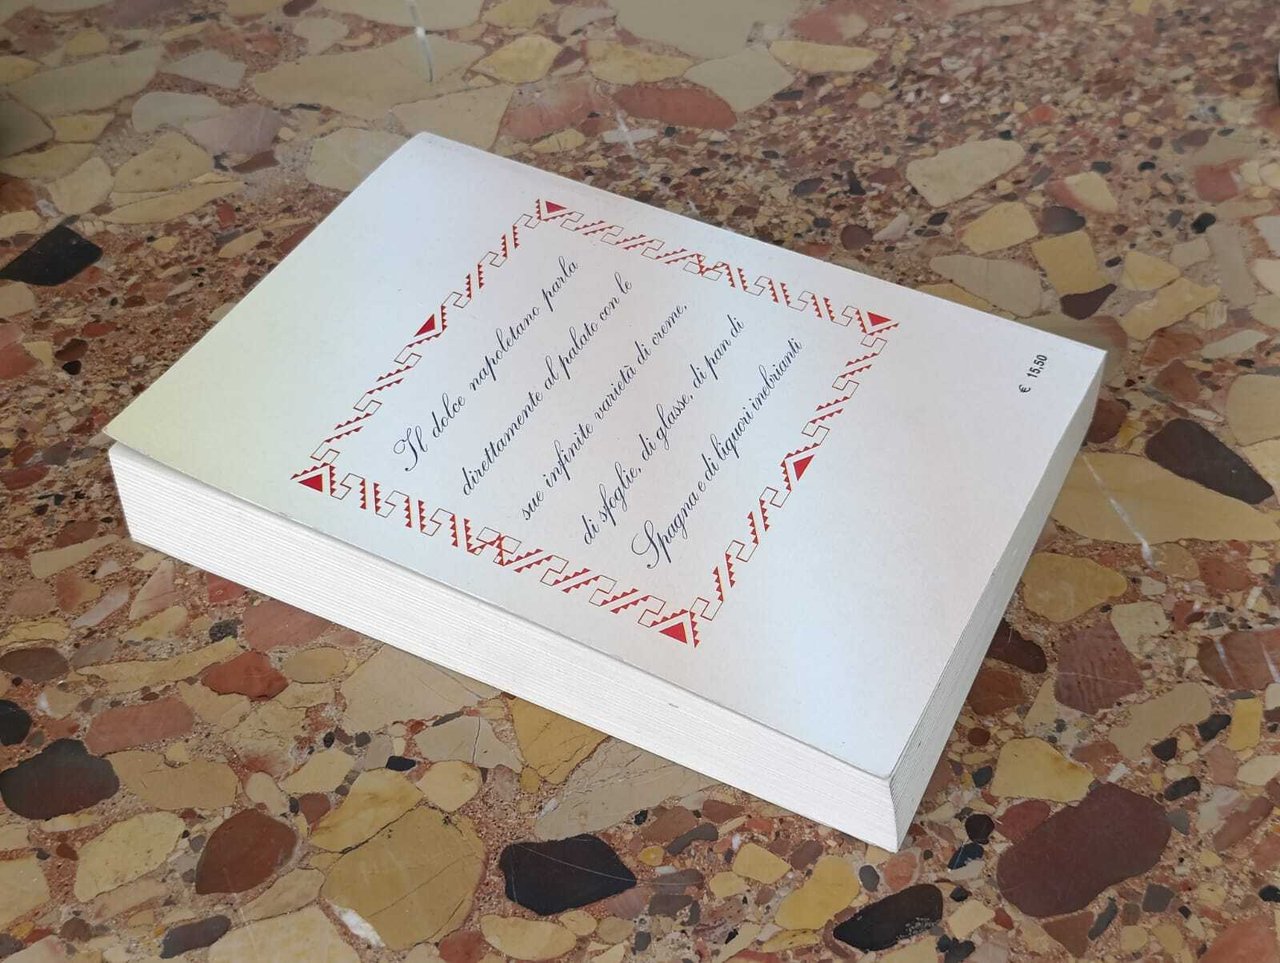 Il dolce napoletano parla
direttamente al palato con le
sue infinite varietà di creme,
di sfoglie, di glasse, di pan di
Spagna e di liquori inebrianti
€ 15,50